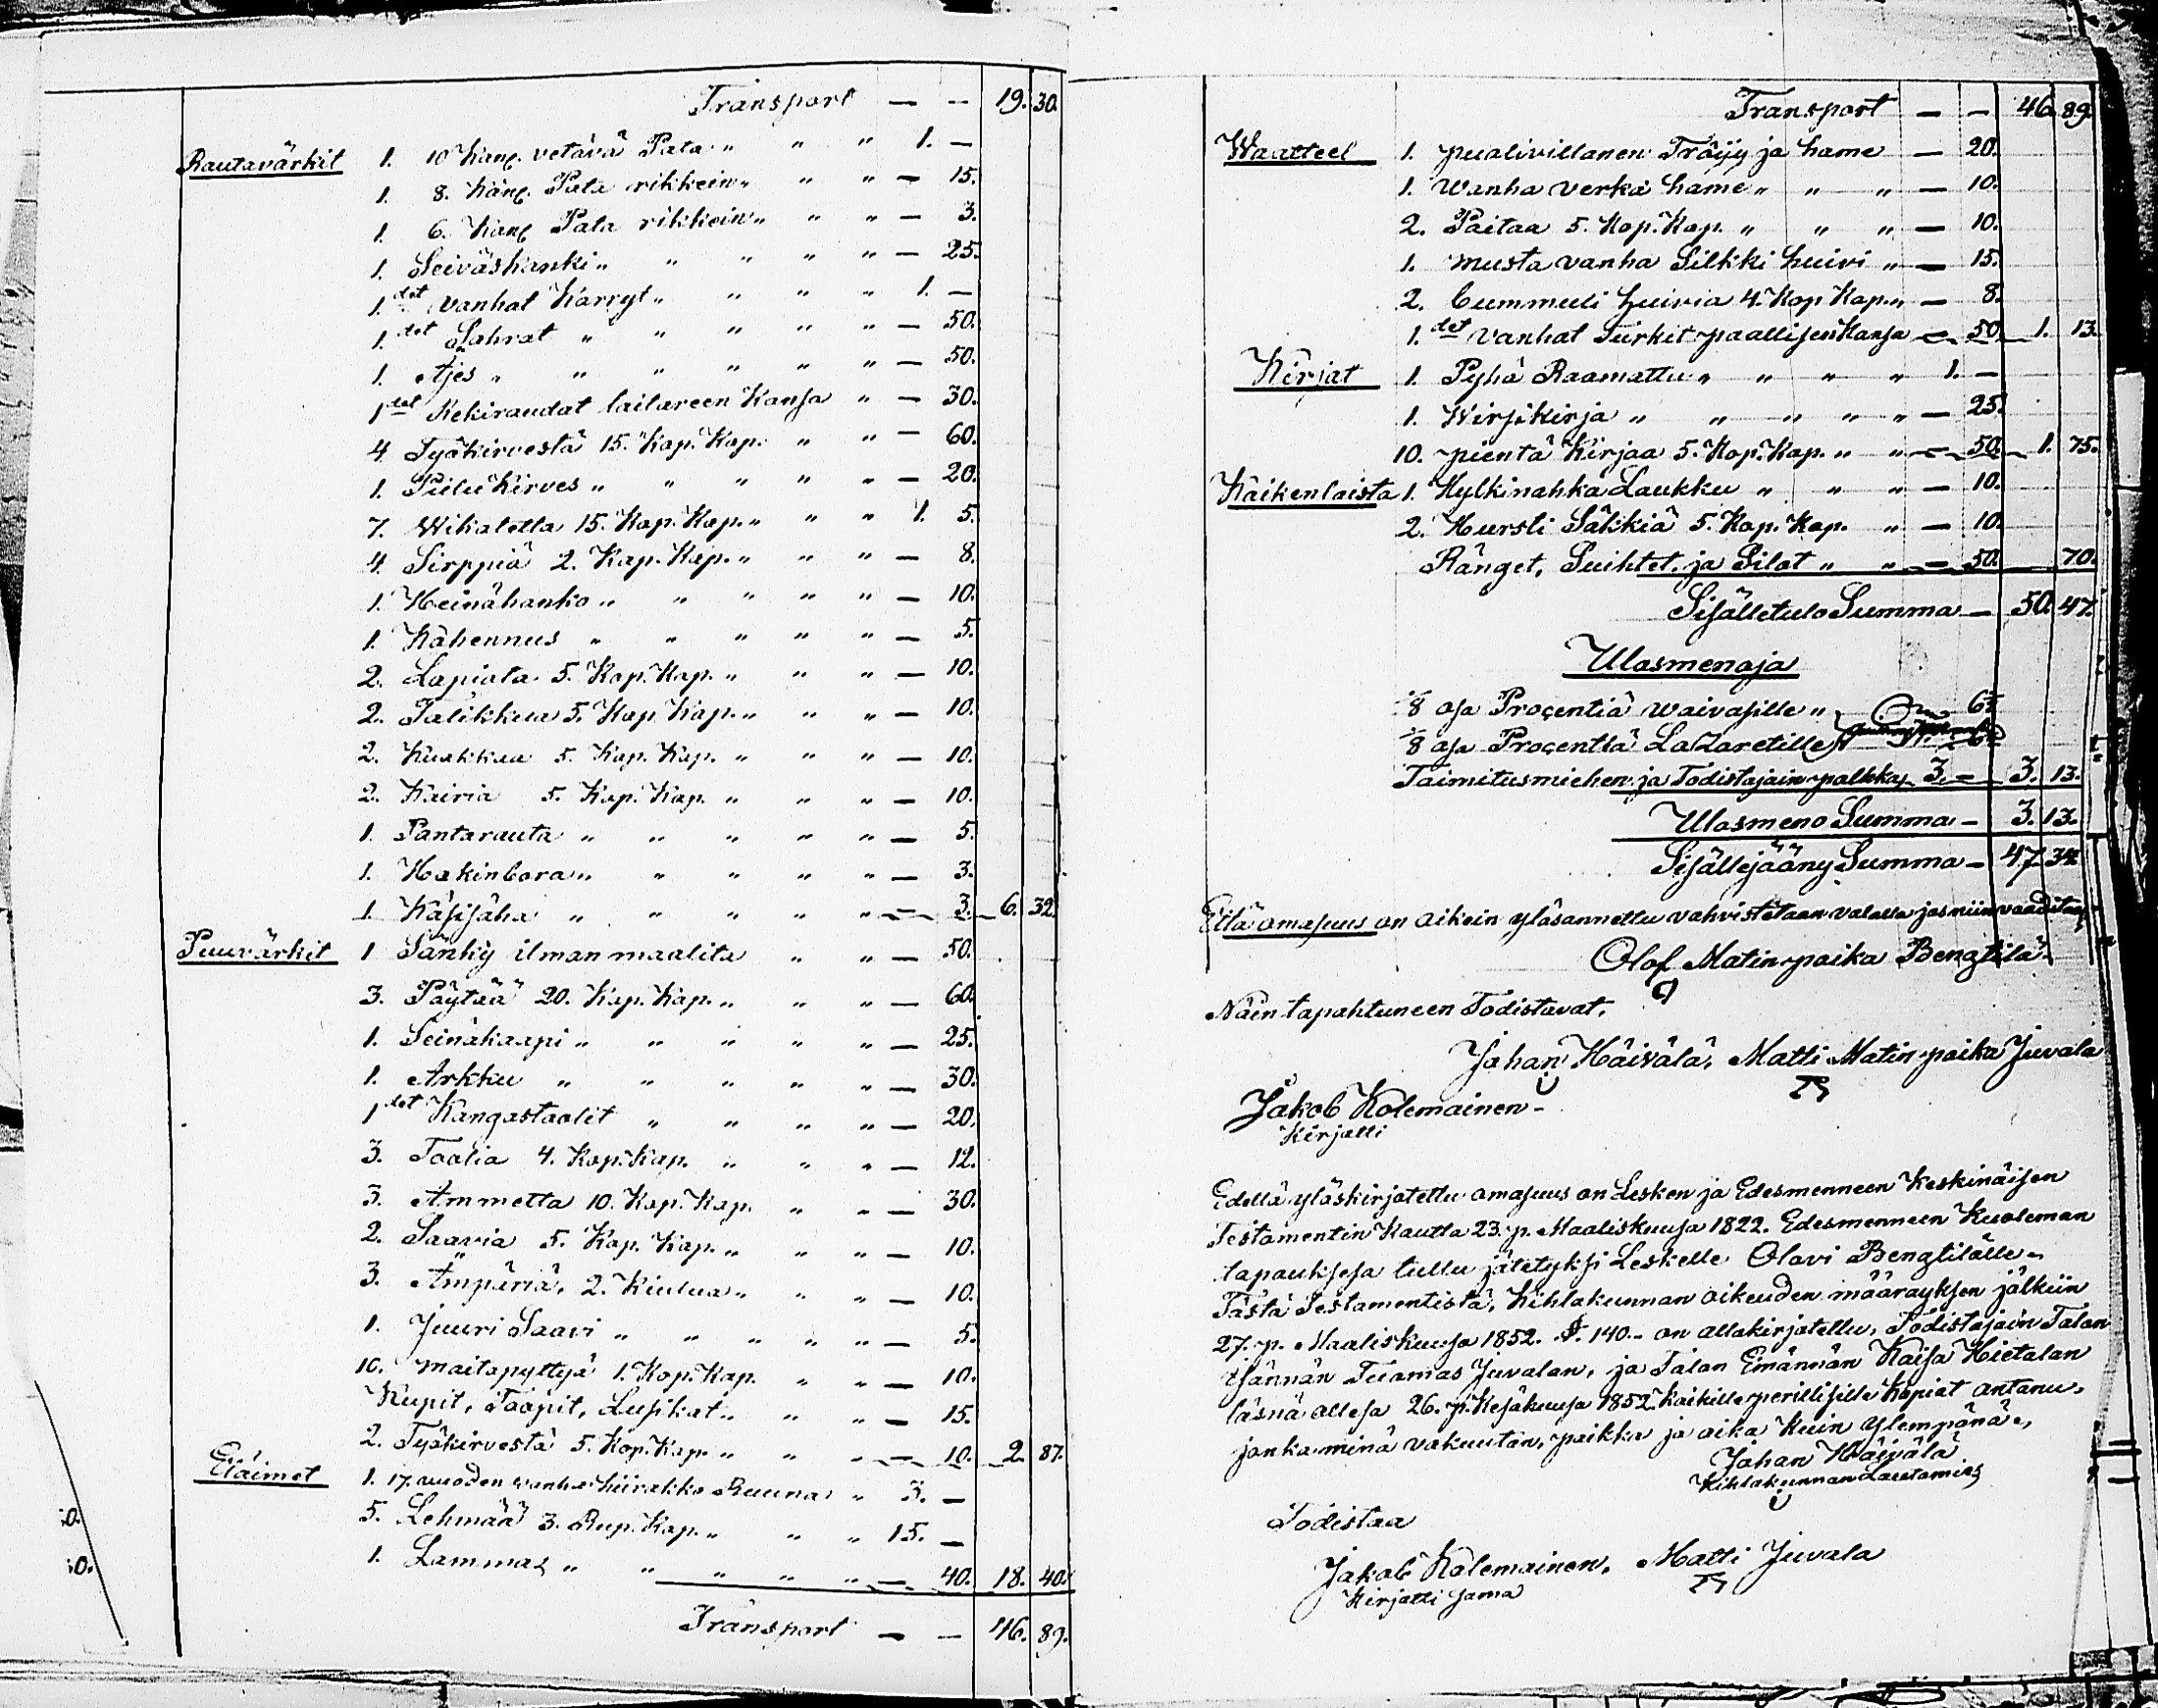 Transport — — 19. 30.
Rautavärkit 1. 10 kan. vetävä Pata " " " 1. —
1. 8. kan. Pata rikkein " " " — 15.
1. 6. kan. Pata rikkein " " " — 3.
1. Seiväshanki " " " " " — 25.
1. det vanhat Kärryt " " " " 1. —
1. det Sahrat " " " " " — 50.
1. Ajes " " " " " " — 50.
1 det Rekiraudat laitareen Kansa " — 30.
4. Työkirvestä 15. Kop. Kap. " " — 60.
1. Piilu Kirves " " " " " — 20.
7. Wikatetta 15. Kop. Kap. " " " 1. 5.
4. Sirppiä 2. Kap. Kap. " " " — 8.
1. Heinähanko " " " " " — 10.
1. Kähennus " " " " " — 5.
2. Lapiata 5. Kop. Kap. " " " — 10.
2. Talikkua 5. Kap. Kap. " " " — 10.
2. Kuakkaa 5. Kap. Kap. " " " — 10.
2. Kairia 5. Kap. Kap. " " " — 10.
1. Pantarauta " " " " " — 5.
1. Hakinbora " " " " " — 3.
1. Käsisaha " " " " " — 3. 6. 32.
Puuvärkit 1 Sänky ilman maalita " " — 50.
3. Päytää 20. Kap. Kap. " " " — 60.
1. Seinäkaapi " " " " " — 25.
1. Arkku " " " " " — 30.
1 det Kangastaolit " " " " — 20.
3. Taalia 4. Kop. Kap. " " " — 12.
3. Ammetta 10. Kap. Kap. " " — 30.
2. Saavia 5. Kap. Kap. " " " — 10.
3. Ämpäriä, 2. Kiulua " " " — 10.
1. Juuri Saavi " " " " " — 5.
10. maitapyttyä 1. Kop. Kap. " " — 10.
Kupit, Taapit, Lusikat " " " — 15.
2. Työkirvestä 5. Kop. Kap. " " " — 10. 2. 87.
Eläimet 1. 17. vuoden vanha hiirakko Ruuna " 3. —
5. Lehmää 3. Rup. Kap. " " " 15. —
1. Lammas " " " " " — 40. 18. 40.
Transport — — 46. 89.
Transport — — 46. 89.
Waatteel 1. pualivillanen Tröyy ja hame — 20.
1. Wanha verka hame " " " — 10.
2. Paitaa 5. Kop. Kap. " " " — 10.
1. musta vanha Silkki huivi " — 15.
2. Cummuli huivia 4. Kop Kap. " — 8.
1. det vanhat Turkit paallisen Kansa — 50. 1. 13.
Kirjat 1. Pyhä Raamattu " " " " 1. —
1. Wirsikirja " " " " " — 25.
10. pientä Kirjaa 5. Kop. Kap. " " — 50. 1. 75.
Kaikenlaista 1. Hylkinahka Laukku " " " — 10.
2. Hursti Säkkiä 5. Kap. Kap. " — 10.
Ränget, Suihtet, ja Silat " " — 50. 70.
Sisälletulo Summa — 50. 47.
Ulasmenoja
1/8 osa Proçentiä waivasille " 6½
1/8 osa Proçentiä Lazaretille 6½
Taimitusmiehen ja Todistajain palkka 3. — 3. 13.
Ulasmeno Summa — 3. 13.
Sisällejääny Summa — 47. 34.
Että omasuus on oikein yläsannettu vahvistetaan valalla jos niin vaaditaan
Olof Matinpoika Bengtilä.
Näin tapahtuneen Todistavat,
Johan Häivälä, Matti Matinpoika Juvala
Jakob Kolemainen -
Kirjotti
Edellä yläskirjotettu omasuus on Lesken ja Edesmenneen Keskinäisen
Testamentin Kautta 23. p. Maaliskuusa 1822. Edesmenneen Kuoleman
tapauksesa tullu jätetyksi Leskelle Olavi Bengtilälle.
Tästä Testamentistä, Kihlakunnan oikeuden määräyksen jälkiin
27. p. Maaliskuusa 1852. §. 140. - on allakirjotellu, Todistajain Talon
isännän Tuomas Juvalan, ja Talan Emännän Kaisa Hietalan
läsnä ollesa 26. p. Kesäkuusa 1852 kaikille perillisille Kopiat antanu,
jonka minä vakuutan, paikka ja aika kuin ylempänä,
Johan Häivälä
Kihlakunnan Lautamies
Todistaa
Jakob Kolemainen, Matti Juvala
Kirjotti sama